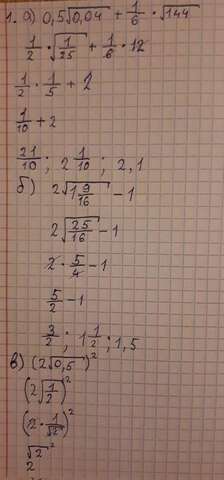 1. а) 0,5√0,04 + 1/6 · √144
1/2 · √(1/25) + 1/6 · 12
1/2 · 1/5 + 2
1/10 + 2
21/10 ; 2 1/10 ; 2,1
б) 2√(1 9/16) - 1
2√(25/16) - 1
2 · 5/4 - 1
5/2 - 1
3/2 ; 1 1/2 ; 1,5
в) (2√0,5)²
(2√(1/2))²
(2 · 1/√2)²
√2²
2